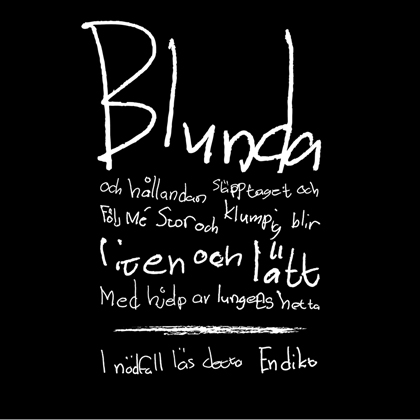 Blunda
och hållandan släpptaget och
Följ Mé Stor och klumpig blir
liten och lätt
Med hjelp av lungens hetta
I nödfall läs detta En dikt